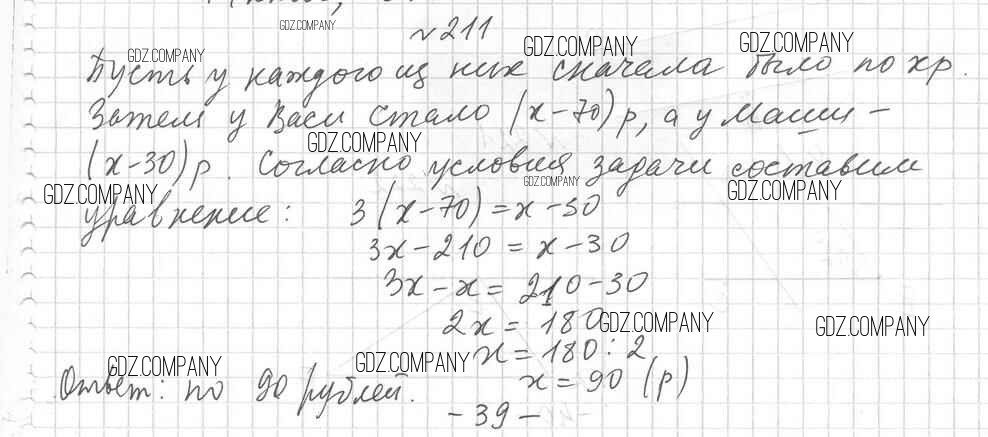 № 211
Пусть у каждого из них сначала было по х р.
Затем у Васи стало (х-70) р, а у Маши -
(х-30) р. Согласно условия задачи составим
уравнение: 3(х-70) = х-30
3х-210 = х-30
3х-х = 210-30
2х = 180
х = 180:2
х = 90 (р)
Ответ: по 90 рублей.
- 39 -
GDZ.COMPANY
GDZ.COMPANY
GDZ.COMPANY
GDZ.COMPANY
GDZ.COMPANY
GDZ.COMPANY
GDZ.COMPANY
GDZ.COMPANY
GDZ.COMPANY
GDZ.COMPANY
GDZ.COMPANY
GDZ.COMPANY